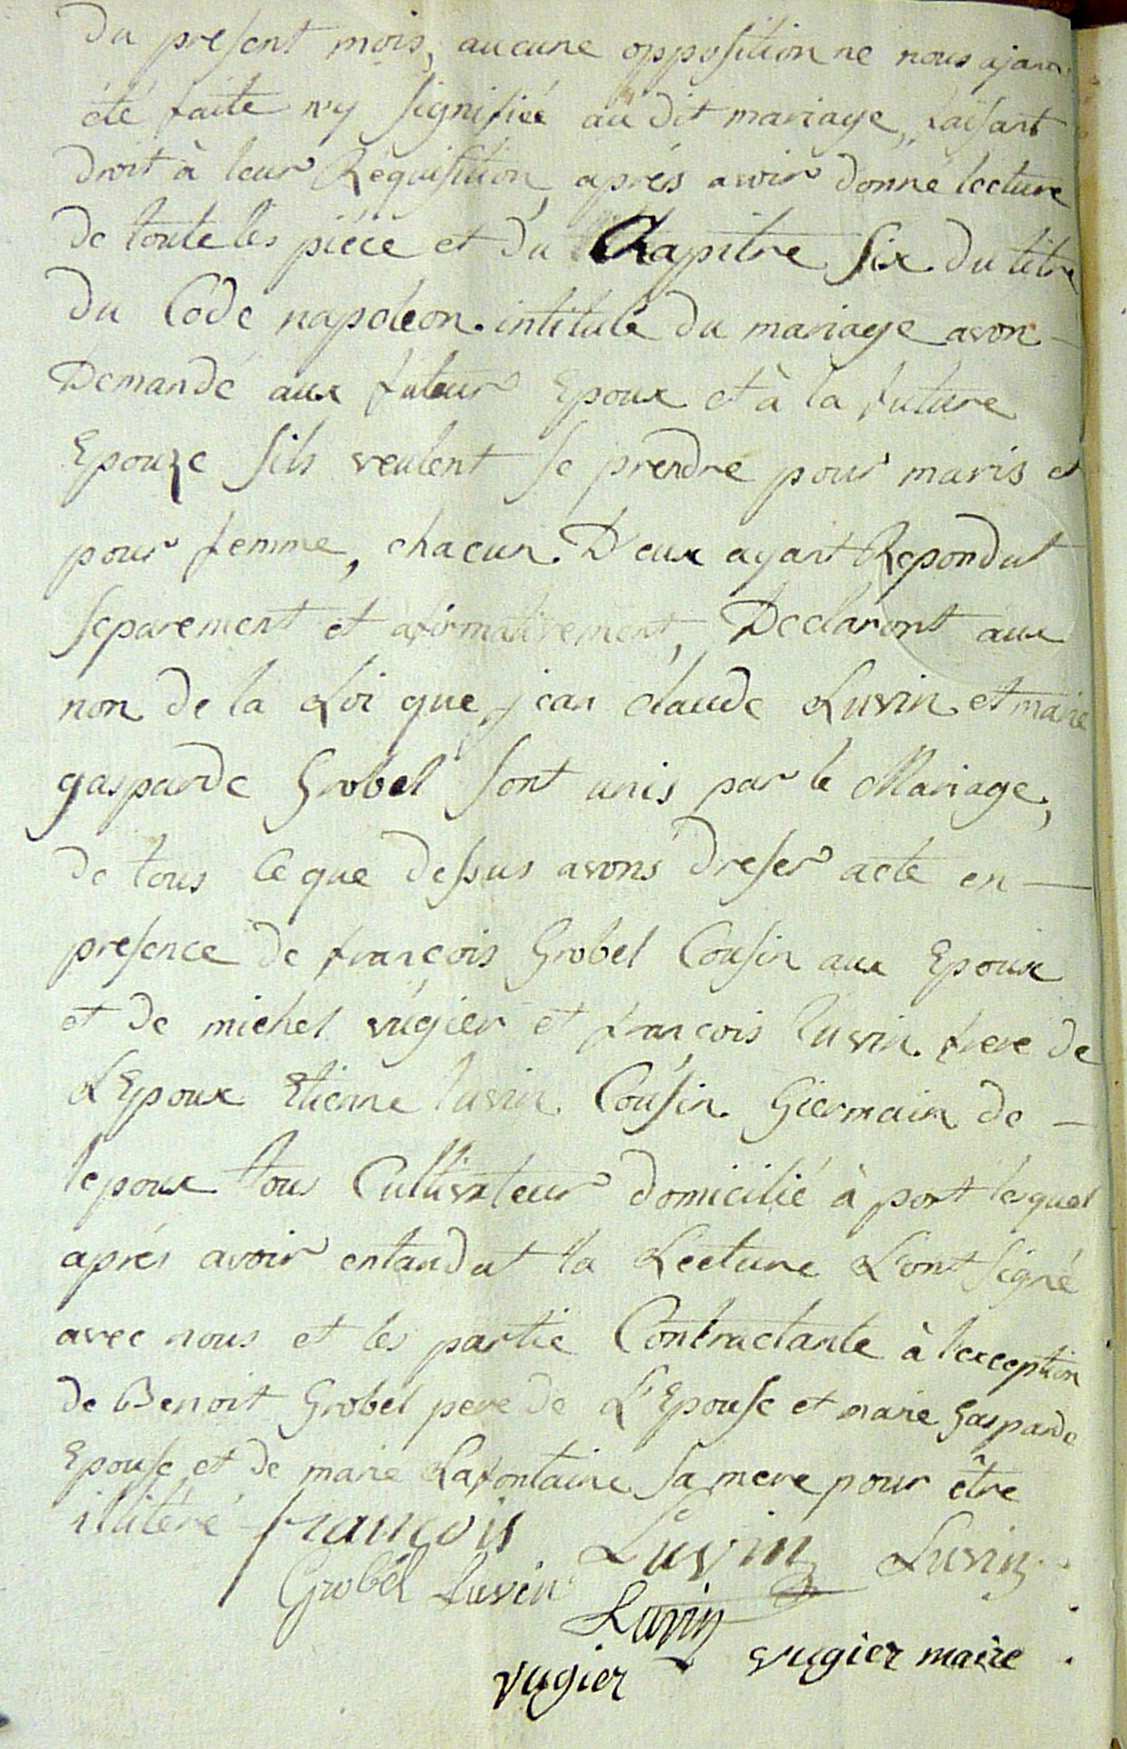 Du present mois, aucune opposition ne nous ajam
été faite ny signifiée au dit mariage, faisant
droit à leur Requisition, aprés avoir donné lecture
de toute les piéce et du Chapitre Six du titre
du Code napoleon intitulé du mariage avon
Demandé aux futeur Epoux et à la future
Epouze Sils veulent se prendre pour maris et
pour femme, chacun D'eux ayant Repondut
Separement et afirmativement, Declaront aux
non de la Loi que jean claude Luvin et marie
gasparde Grobel Sont unis par le Mariage,
de tous Ce que dessus avons dreser acte en
presence de françois Grobel Cousin aux Epoux
et de michel vugier et françois luvin frere de
L'Epoux Etienne luvin Cousin Giermain de
lepoux tous Cultivateur domicilié à port lesquel
aprés avoir entandut la Lecture L'ont signé
avec nous et les partie Contractante à l'exception
de Benoit Grobel pere de L'Epouse et marie Gasparde
Epouse et de marie Lafontaine Sa mere pour être
ilitéré françois Luvin Luvin
Grobel luvin
Luvin
vugier vugier maire